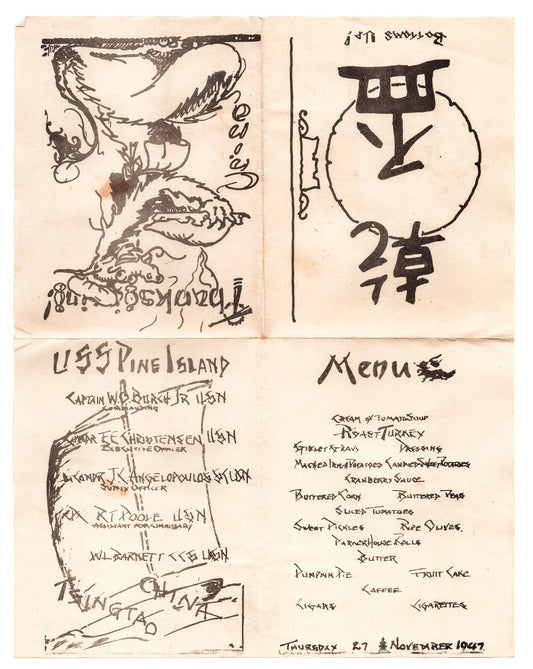 Thanksgiving!
乾
盃
BOTTOMS UP!
USS PINE ISLAND
CAPTAIN W.D. BURCH JR USN
COMMANDING
COMDR E.E. CHRISTENSEN USN
EXECUTIVE OFFICER
LT COMDR J.K. ANGELOPOULOS SC USN
SUPPLY OFFICER
R.T. POOLE USN
ASSISTANT FOR COMMISSARY
W.L. BARNETT CCS USN
TSINGTAO CHINA
MENU
CREAM OF TOMATO SOUP
ROAST TURKEY
GIBLET GRAVY DRESSING
MASHED IRISH POTATOES CANNED SWEET POTATOES
CRANBERRY SAUCE
BUTTERED CORN BUTTERED PEAS
SLICED TOMATOES
SWEET PICKLES RIPE OLIVES
PARKERHOUSE ROLLS
BUTTER
PUMPKIN PIE FRUIT CAKE
COFFEE
CIGARS CIGARETTES
THURSDAY 27 NOVEMBER 1947